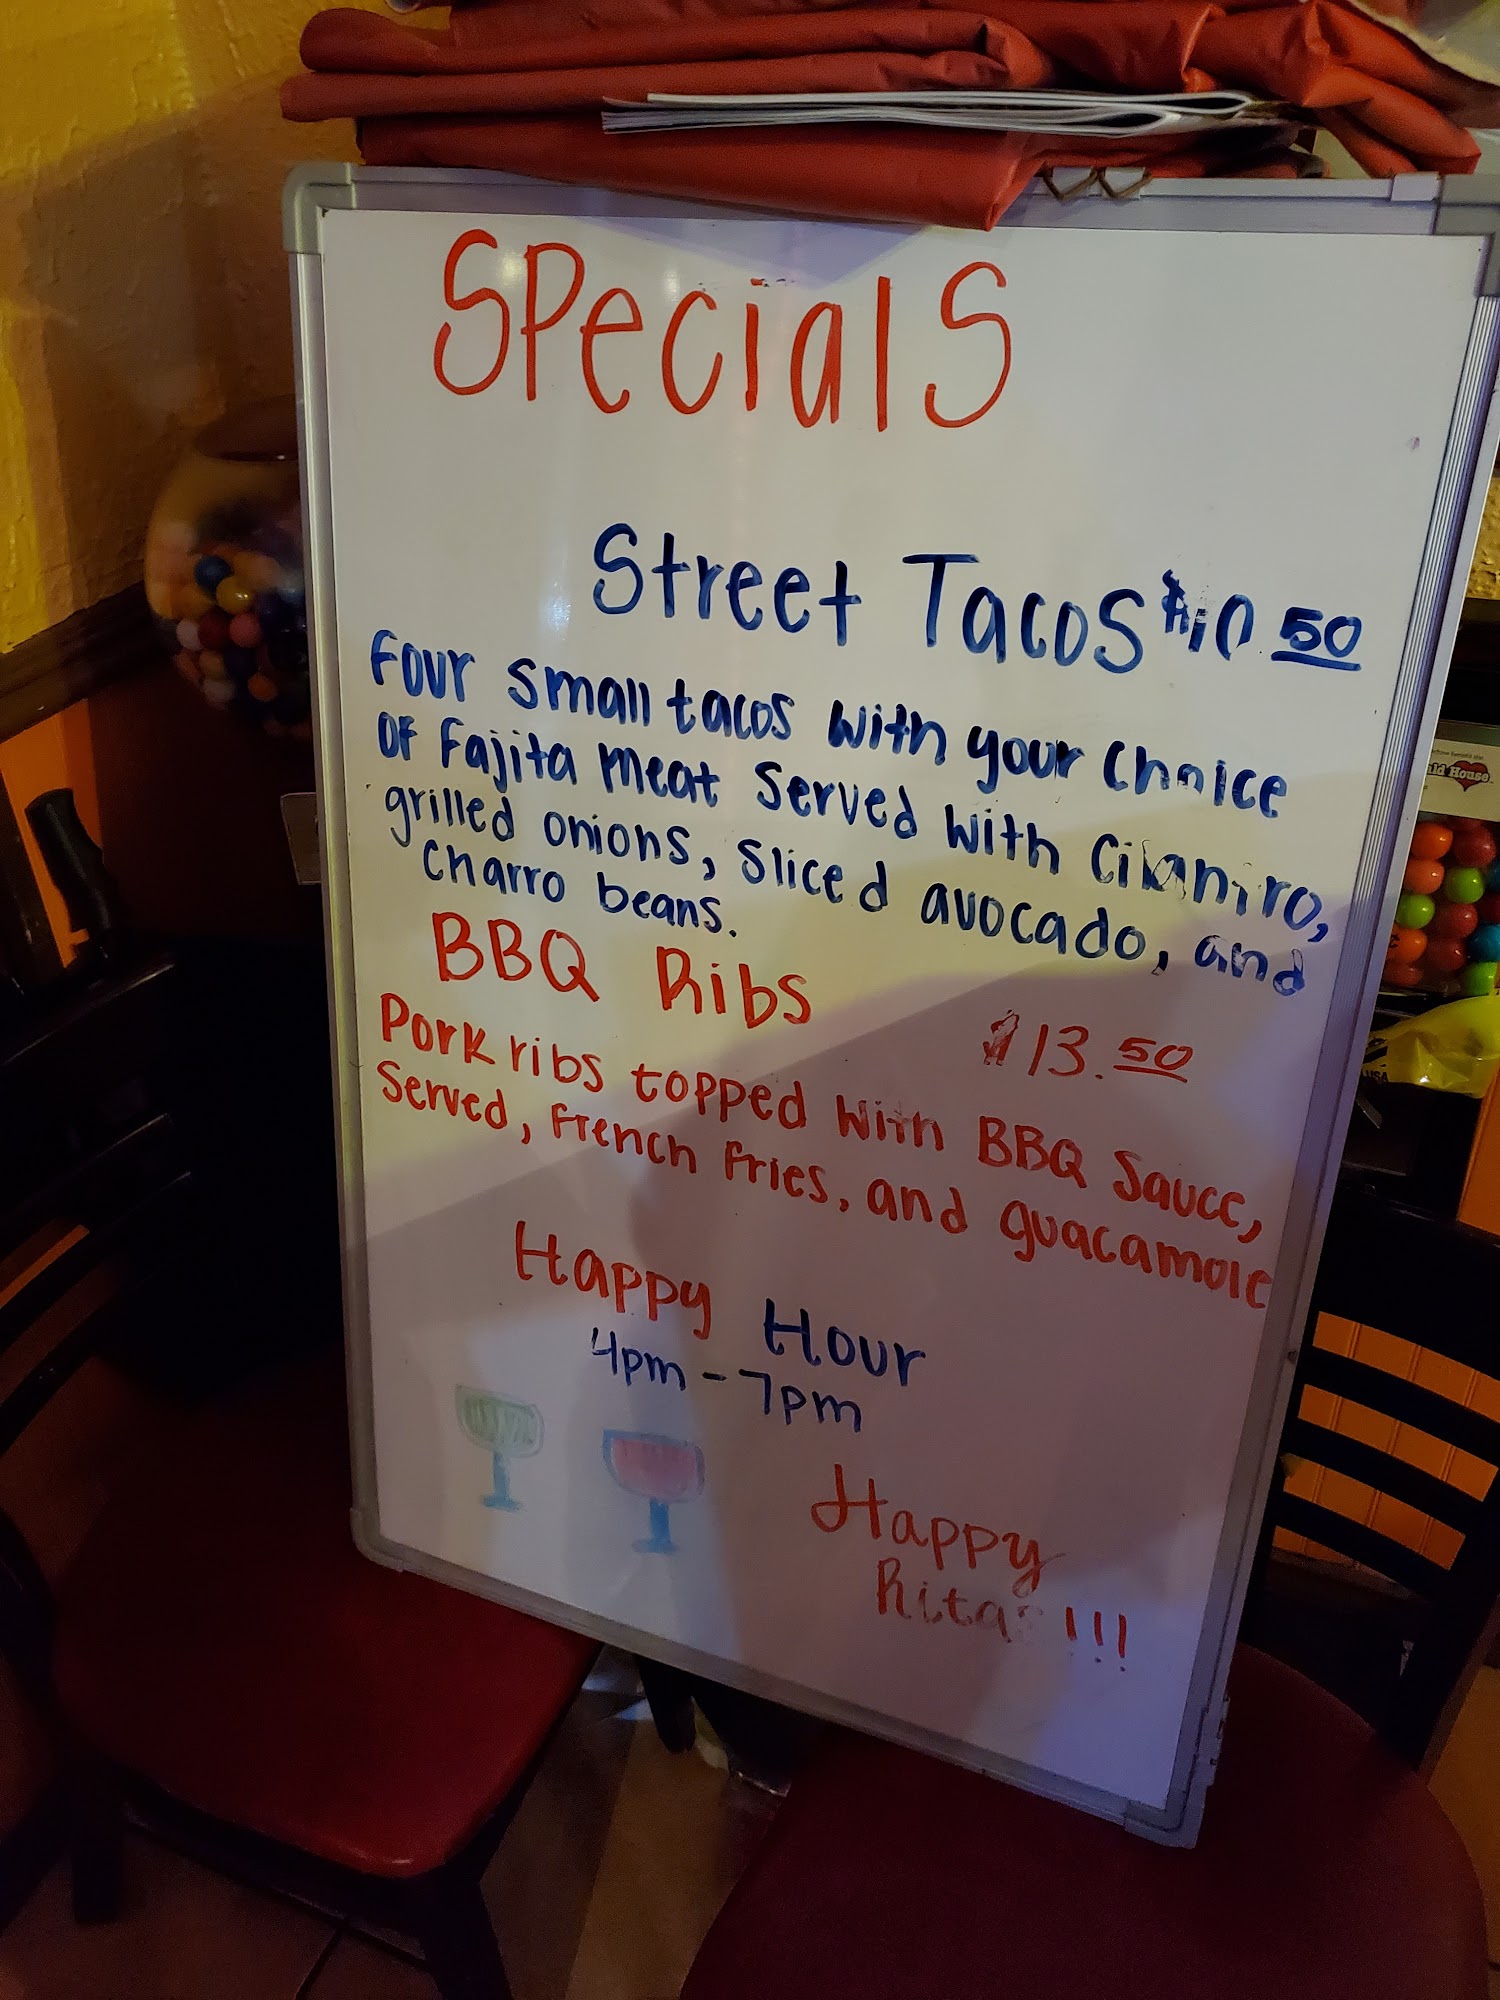 Specials
Street Tacos $10.50
Four small tacos with your choice
of Fajita meat served with Cilantro,
grilled onions, sliced avocado, and
charro beans.
BBQ Ribs
$13.50
Pork ribs topped with BBQ Sauce,
Served, French fries, and guacamole
Happy Hour
4pm - 7pm
Happy
Ritas !!!
House
USA